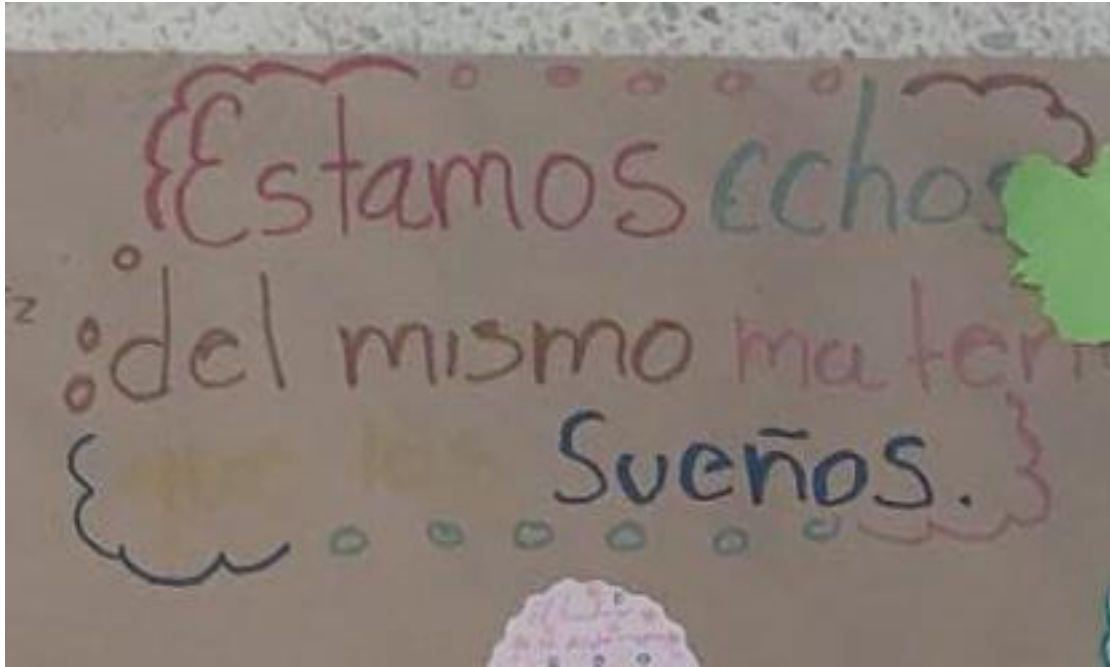 Estamos echos
del mismo materi
que los Sueños.